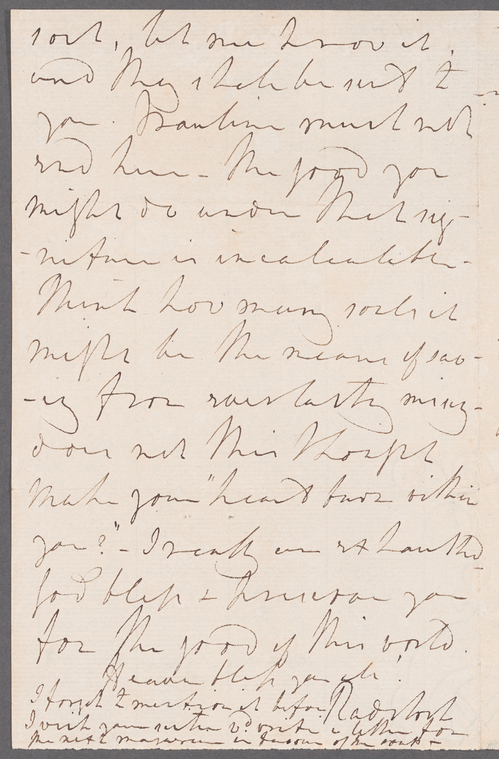 sort, let me know it,
and they shall be sent to
you. Pauline must not
end here - The good you
might do under that sig-
-nature is incalculable -
Think how many souls it
might be the means of sav-
-ing from everlasting misery -
does not this thought
make your "heart burn within
you?" - I really am exhausted
God bless & preserve you
for the good of this world.
Heaven bless you all!
I forgot to mention it before
I wish your sister wd. write a letter for
the next magazine in favour of the